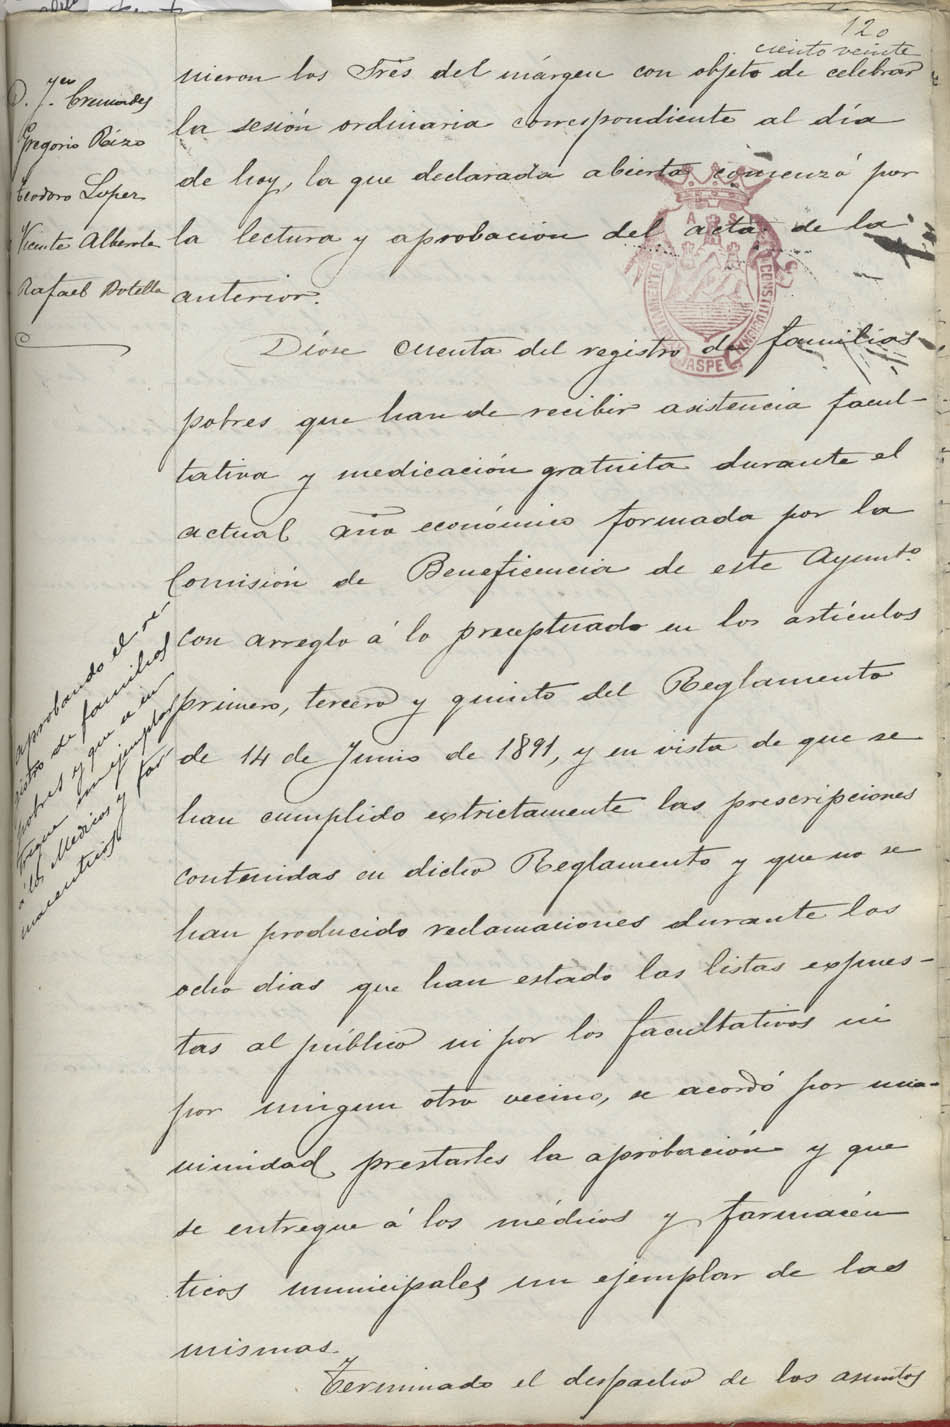 120
ciento veinte
D. Jph. Cremades
Gregorio Rizo
Teodoro Lopez
Vicente Alberola
Rafael Botella
nieron los Sres del márgen con objeto de celebrar
la sesión ordinaria correspondiente al día
de hoy, la que declarada abierta comenzó por
la lectura y aprobacion del acta de la
anterior.
Dióse cuenta del registro de familias
pobres que han de recibir asistencia facul-
tativa y medicación gratuita durante el
actual año económico formada por la
Comisión de Beneficencia de este Ayuntº.
con arreglo á lo preceptuado en los artículos
primero, tercero y quinto del Reglamento
de 14 de Junio de 1891, y en vista de que se
han cumplido extrictamente las prescripciones
contenidas en dicho Reglamento y que no se
han producido reclamaciones durante los
ocho dias que han estado las listas expues-
tas al público ni por los facultativos ni
por ningun otro vecino, se acordó por una-
nimidad prestarles la aprobación y que
se entregue á los médicos y farmacéu
ticos municipales un ejemplar de las
mismas.
Terminado el despacho de los asuntos
aprobando el re-
gistro de familias
pobres y que se en
tregue un ejemplar
á los Médicos y far
maceuticos
CONSTITUCIONAL
JASPE